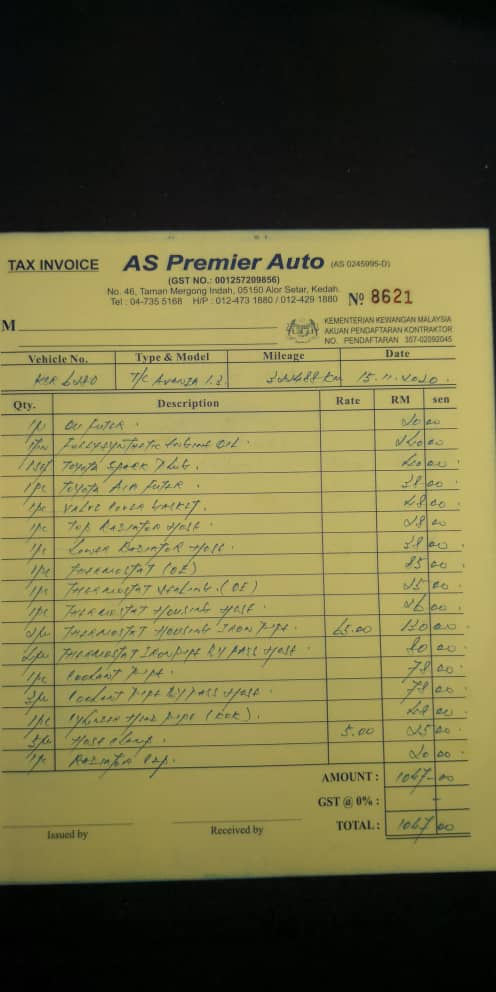 TAX INVOICE AS Premier Auto (AS 0245995-D)
(GST NO.: 001257209856)
No. 46, Taman Mergong Indah, 05150 Alor Setar, Kedah.
Tel : 04-735 5168 H/P : 012-473 1880 / 012-429 1880 Nº 8621
M
KEMENTERIAN KEWANGAN MALAYSIA
AKUAN PENDAFTARAN KONTRAKTOR
NO. PENDAFTARAN 357-02092045
Vehicle No. Type & Model Mileage Date
T/C Avanza 1.3 322488 KM 15.11.2020
Qty. Description Rate RM sen
1pc Oil Filter 20 00
Fullysynthetic Engine Oil 00
1set Toyota Spark Plug 00
1pc Toyota Air Filter 38 00
1pc Valve Cover Gasket 48 00
1pc Top Radiator Hose 28 00
1pc Lower Radiator Hose 38 00
1pc Thermostat (OE) 85 00
1pc Thermostat Sealing (OE) 25 00
1pc Thermostat Housing Hose 26 00
2pc Thermostat Housing Iron Pipe 65.00 130 00
2pc Thermostat Iron Pipe By Pass Hose 80 00
1pc Coolant Pipe 78 00
3pc Coolant Pipe By Pass Hose 78 00
1pc Cylinder Head Pipe 00
5pc Hose Clamp 5.00 25 00
1pc Radiator Cap 20 00
AMOUNT : 1067-00
GST @ 0% : -
TOTAL : 1067 00
Issued by Received by